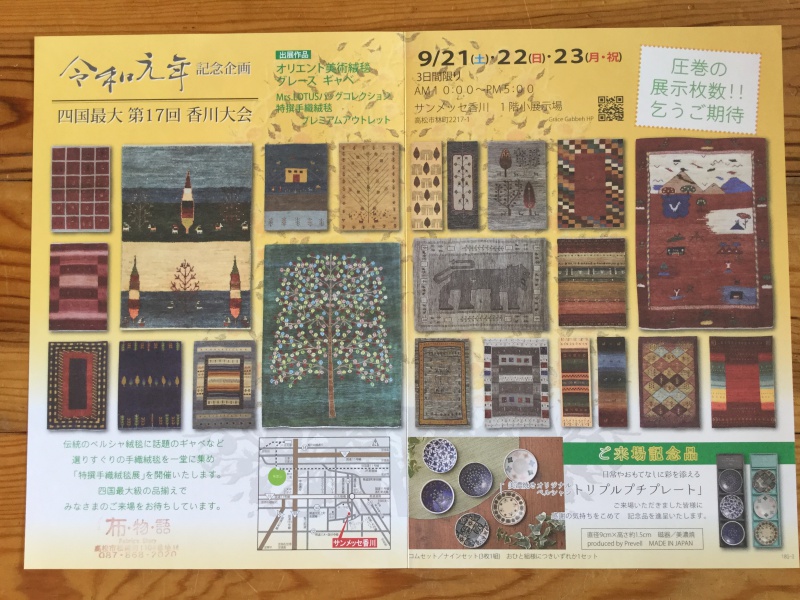 令和元年 記念企画
四国最大 第17回 香川大会
出展作品
オリエント美術絨毯
グレース ギャベ
Mrs.LOTUSバッグコレクション
特撰手織絨毯
プレミアムアウトレット
9/21(土)・22(日)・23(月・祝)
3日間限り
AM10:00〜PM5:00
サンメッセ香川 1階小展示場
高松市林町2217-1
Grace Gabbeh HP
圧巻の
展示枚数!!
乞うご期待
伝統のペルシャ絨毯に話題のギャベなど
選りすぐりの手織絨毯を一堂に集め
「特撰手織絨毯展」を開催いたします。
四国最大級の品揃えで
みなさまのご来場をお待ちしています。
布・物・語
サンメッセ香川
ご来場記念品
日常やおもてなしに彩を添える
トリプルプチプレート」
ご来場いただきました皆様に
感謝の気持ちをこめて 記念品を進呈いたします。
直径9cm×高さ約1.5cm 磁器/美濃焼
produced by Prevell MADE IN JAPAN
コムセット/ナインセット(3枚1組) おひと組様につきいずれか1セット